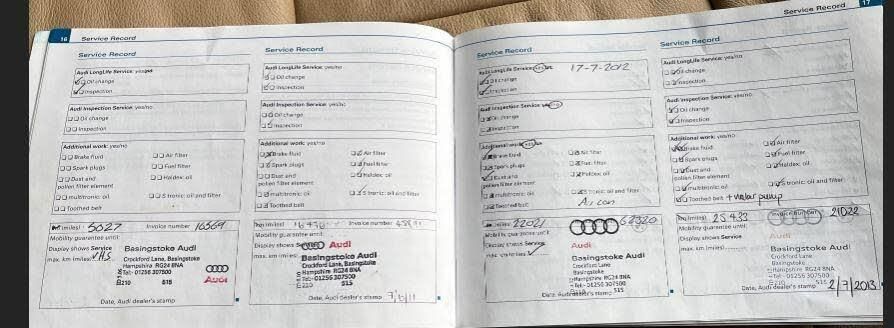 16 Service Record
Service Record
Audi LongLife Service: yes/no
Oil change
Inspection
Audi Inspection Service: yes/no
Oil change
Inspection
Additional work: yes/no
Brake fluid
Air filter
Spark plugs
Fuel filter
Dust and
pollen filter element
Haldex: oil
multitronic: oil
S tronic: oil and filter
Toothed belt
km (miles) 5027 Invoice number 16569
Mobility guarantee until:
Display shows Service
max. km (miles):
Basingstoke Audi
Crockford Lane, Basingstoke
Hampshire RG24 8NA
Tel: 01256 307500
515
Audi
Date, Audi dealer's stamp
Service Record
Audi LongLife Service: yes/no
Oil change
Inspection
Audi Inspection Service: yes/no
Oil change
Inspection
Additional work: yes/no
Brake fluid
Air filter
Spark plugs
Fuel filter
Dust and
pollen filter element
Haldex: oil
multitronic: oil
S tronic: oil and filter
Toothed belt
km (miles) Invoice number
Mobility guarantee until:
Display shows Service
Audi
max. km (miles):
Basingstoke Audi
Crockford Lane, Basingstoke
Hampshire RG24 8NA
Tel: 01256 307500
515
Date, Audi dealer's stamp
Service Record 17
Service Record
Audi LongLife Service: yes/no 17-7-2012
Oil change
Inspection
Audi Inspection Service: yes/no
Oil change
Inspection
Additional work: yes/no
Brake fluid
Air filter
Spark plugs
Fuel filter
Dust and
pollen filter element
Haldex: oil
multitronic: oil
S tronic: oil and filter
Toothed belt
Air con
km (miles) 22021
Mobility guarantee until:
Display shows Service
max. km (miles):
Audi
Basingstoke Audi
Crockford Lane
Basingstoke
Hampshire RG24 8NA
Tel: 01256 307500
515
Date, Audi dealer's stamp
Service Record
Audi LongLife Service: yes/no
Oil change
Inspection
Audi Inspection Service: yes/no
Oil change
Inspection
Additional work: yes/no
Brake fluid
Air filter
Spark plugs
Fuel filter
Dust and
pollen filter element
Haldex: oil
multitronic: oil
S tronic: oil and filter
Toothed belt + water pump
km (miles) 25433 Invoice number 21022
Mobility guarantee until:
Display shows Service
max. km (miles):
Audi
Basingstoke Audi
Crockford Lane
Basingstoke
Hampshire RG24 8NA
Tel: 01256 307500
515
Date, Audi dealer's stamp 2/7/2013